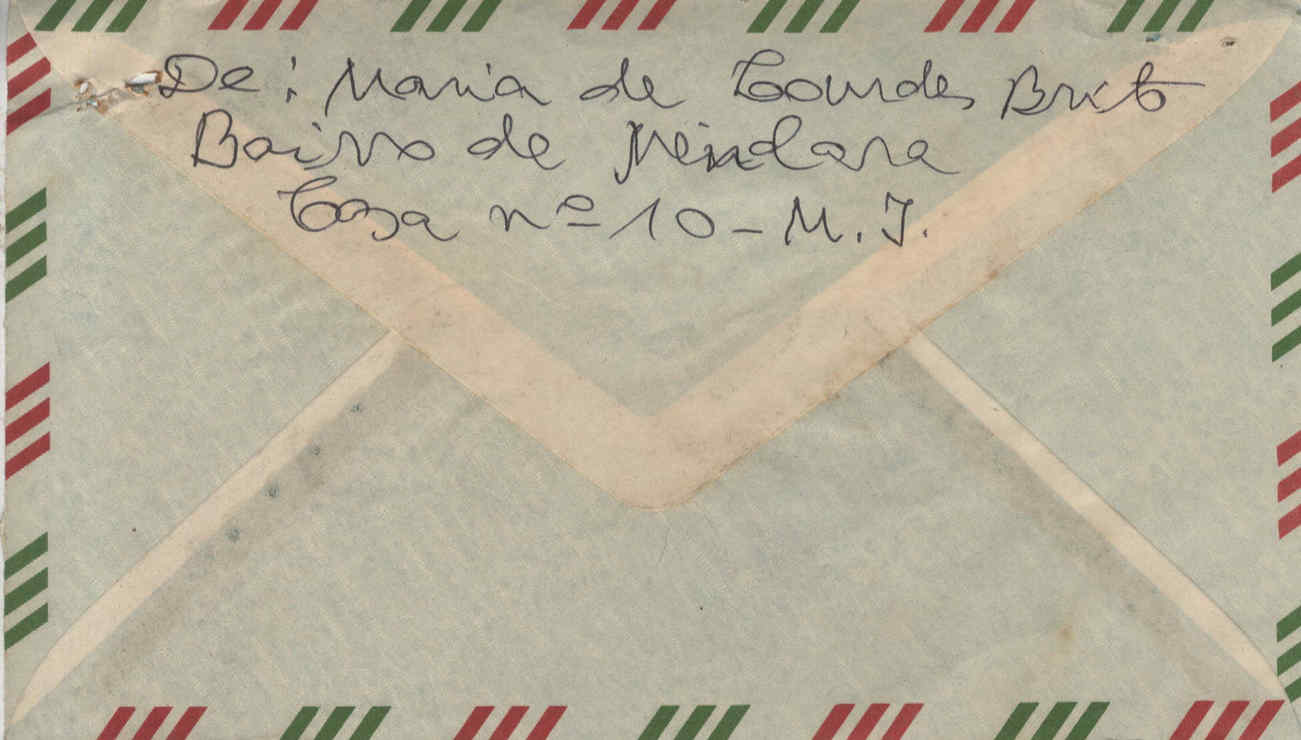 De: Maria de Lourdes Brito
Bairro de Mindara
Casa nº 10 - M. J.